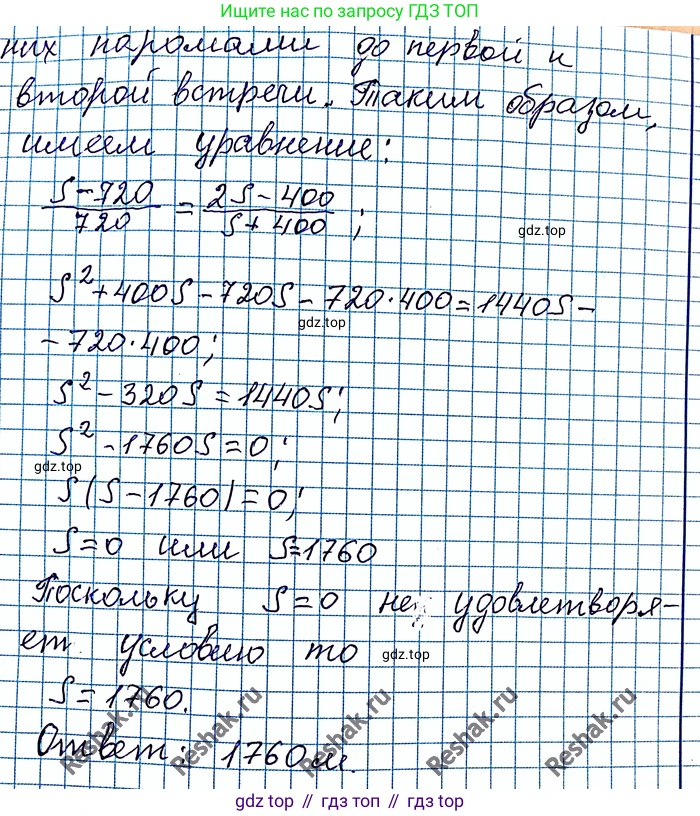 Ищите нас по запросу ГДЗ ТОП
них паромами до первой и
второй встречи. Таким образом,
имеем уравнение:
(S-720)/720 = (2S-400)/(S+400);
gdz.top
S²+400S-720S-720·400=1440S-
gdz.top
-720·400;
S²-320S=1440S;
S²-1760S=0;
gdz.top
S(S-1760)=0;
S=0 или S=1760
Поскольку S=0 не удовлетворя-
ет условию то
gdz.top
S=1760.
Ответ: 1760м.
Reshak.ru Reshak.ru Reshak.ru Reshak.ru Reshak.ru
gdz.top // гдз топ // gdz.top // гдз топ